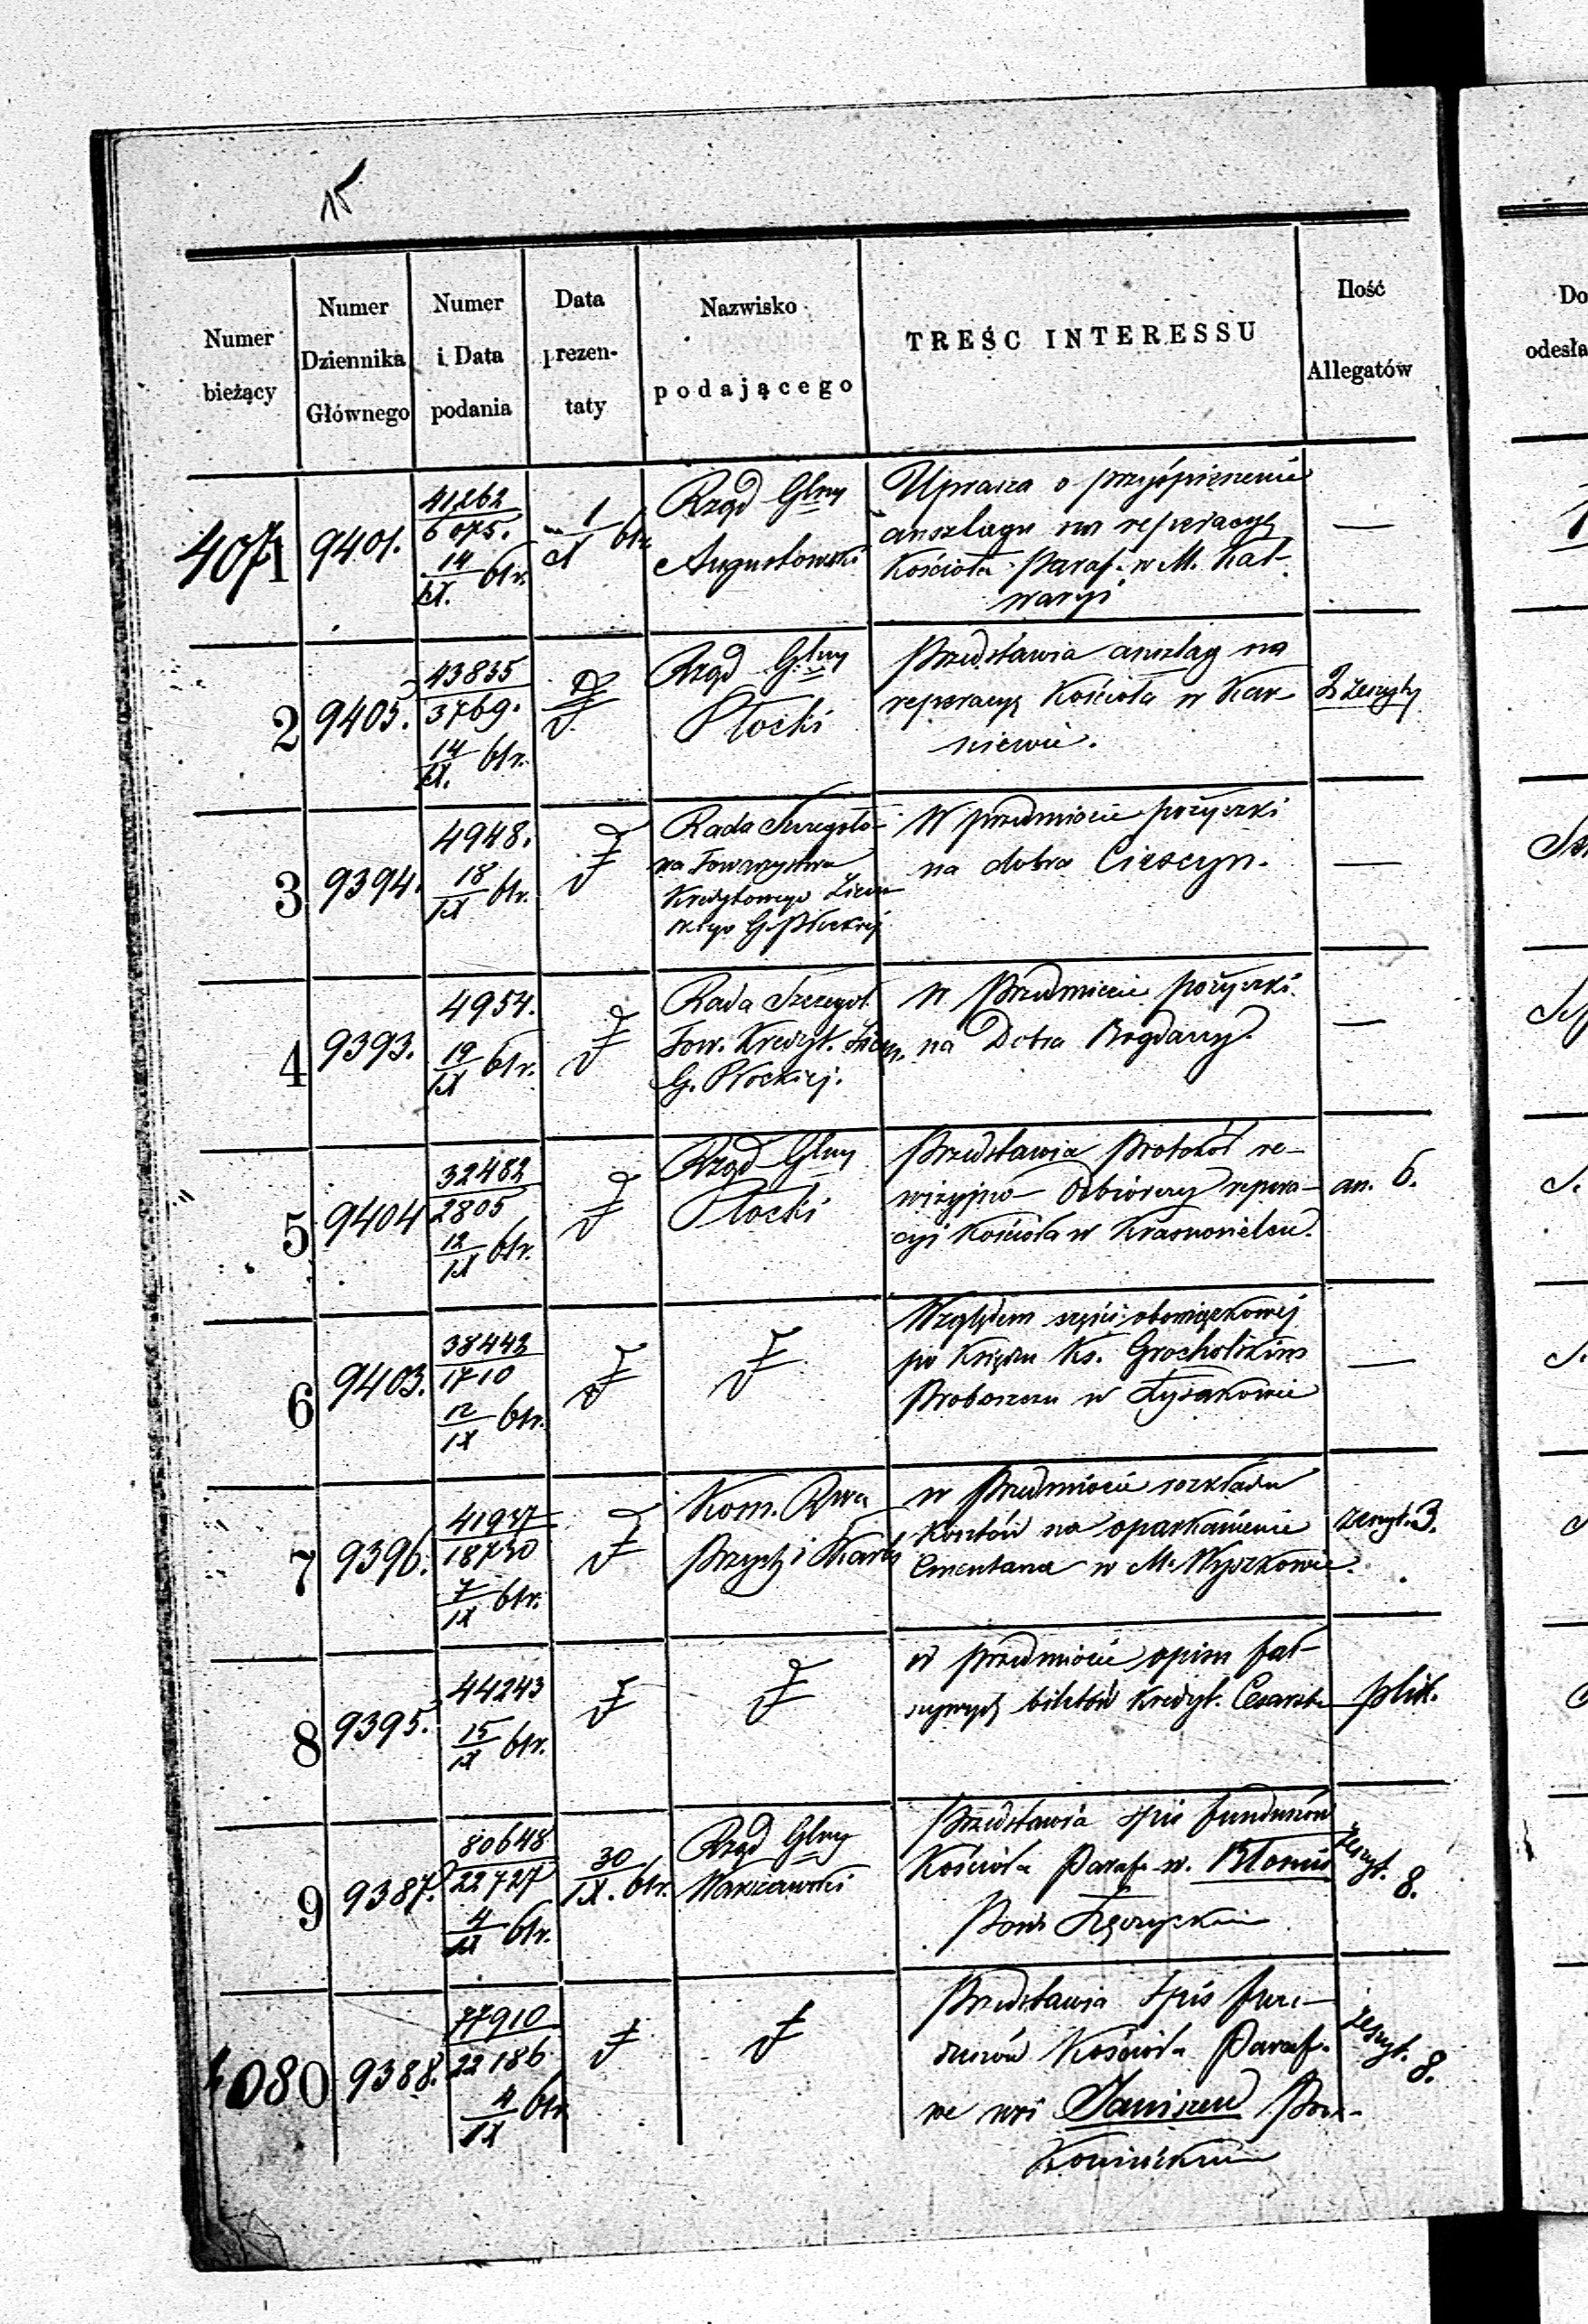 15
Numer bieżący
Numer Dziennika Głównego
Numer i Data podania
Data prezentaty
Nazwisko podającego
TREŚC INTERESSU
Ilość Allegatów
Do
odesła
4071
9401.
41262
6075.
14
IX. 61r.
1
X 61r.
Rząd Glny
Augustowski
Uprasza o przyśpieszenie
anszlagu na reperacyę
Kościoła Paraf. w M. Kal-
waryi
—
2
9405.
43835
3769.
14
IX. 61r.
Rząd Glny
Płocki
Przedstawia anszlag na
reperacyę Kościoła w Kar
niewie.
2 zeszyty
3
9394.
4948.
18
IX 61r.
Rada Szczegóło
na Towarzystwa
Kredytowego Ziem
skiego G. Płockiej
W przedmiocie pożyczki
na dobra Cieszyn.
—
4
9393.
4954.
19
IX 61r.
Rada Szczegół.
Tow. Kredyt. Ziem.
G. Płockiej.
W Przedmiocie pożyczki
na Dobra Bogdany.
—
5
9404
32482
2805
12
IX 61r.
Rząd Glny
Płocki
Przedstawia Protokół re-
wizyjno Odbiorczy repera-
cyi Kościoła w Krasnosielcu.
an. 6.
6
9403.
38442
1710
12
IX 61r.
Względem części obowiązkowej
po Księdzu Ks. Grocholskim
Proboszczu w Łysakowie
—
7
9396.
41937
18730
7
IX 61r.
Kom. Rwa
Przych i Skarb
w Przedmiocie rozkładu
Kosztów na oparkanienie
Cmentarza w M. Wyszkowie.
zeszyt. 3.
8
9395.
44243
15
IX 61r.
w przedmiocie opinii fał-
szywych biletów Kredyt. Cesarstw
plik.
9
9387.
80648
22727
4
IX 61r.
30
IX. 61r.
Rząd Glny
Warszawski
Przedstawia spis funduszów
Kościoła Paraf. w. Błoniu
Powie Łęczyckim
zeszyt. 8.
4080
9388.
77910
22186
4
IX 61r
Przedstawia Spis fun-
duszów Kościoła Paraf.
we wsi Janiszew Pow-
Konińskim
zeszyt. 8.